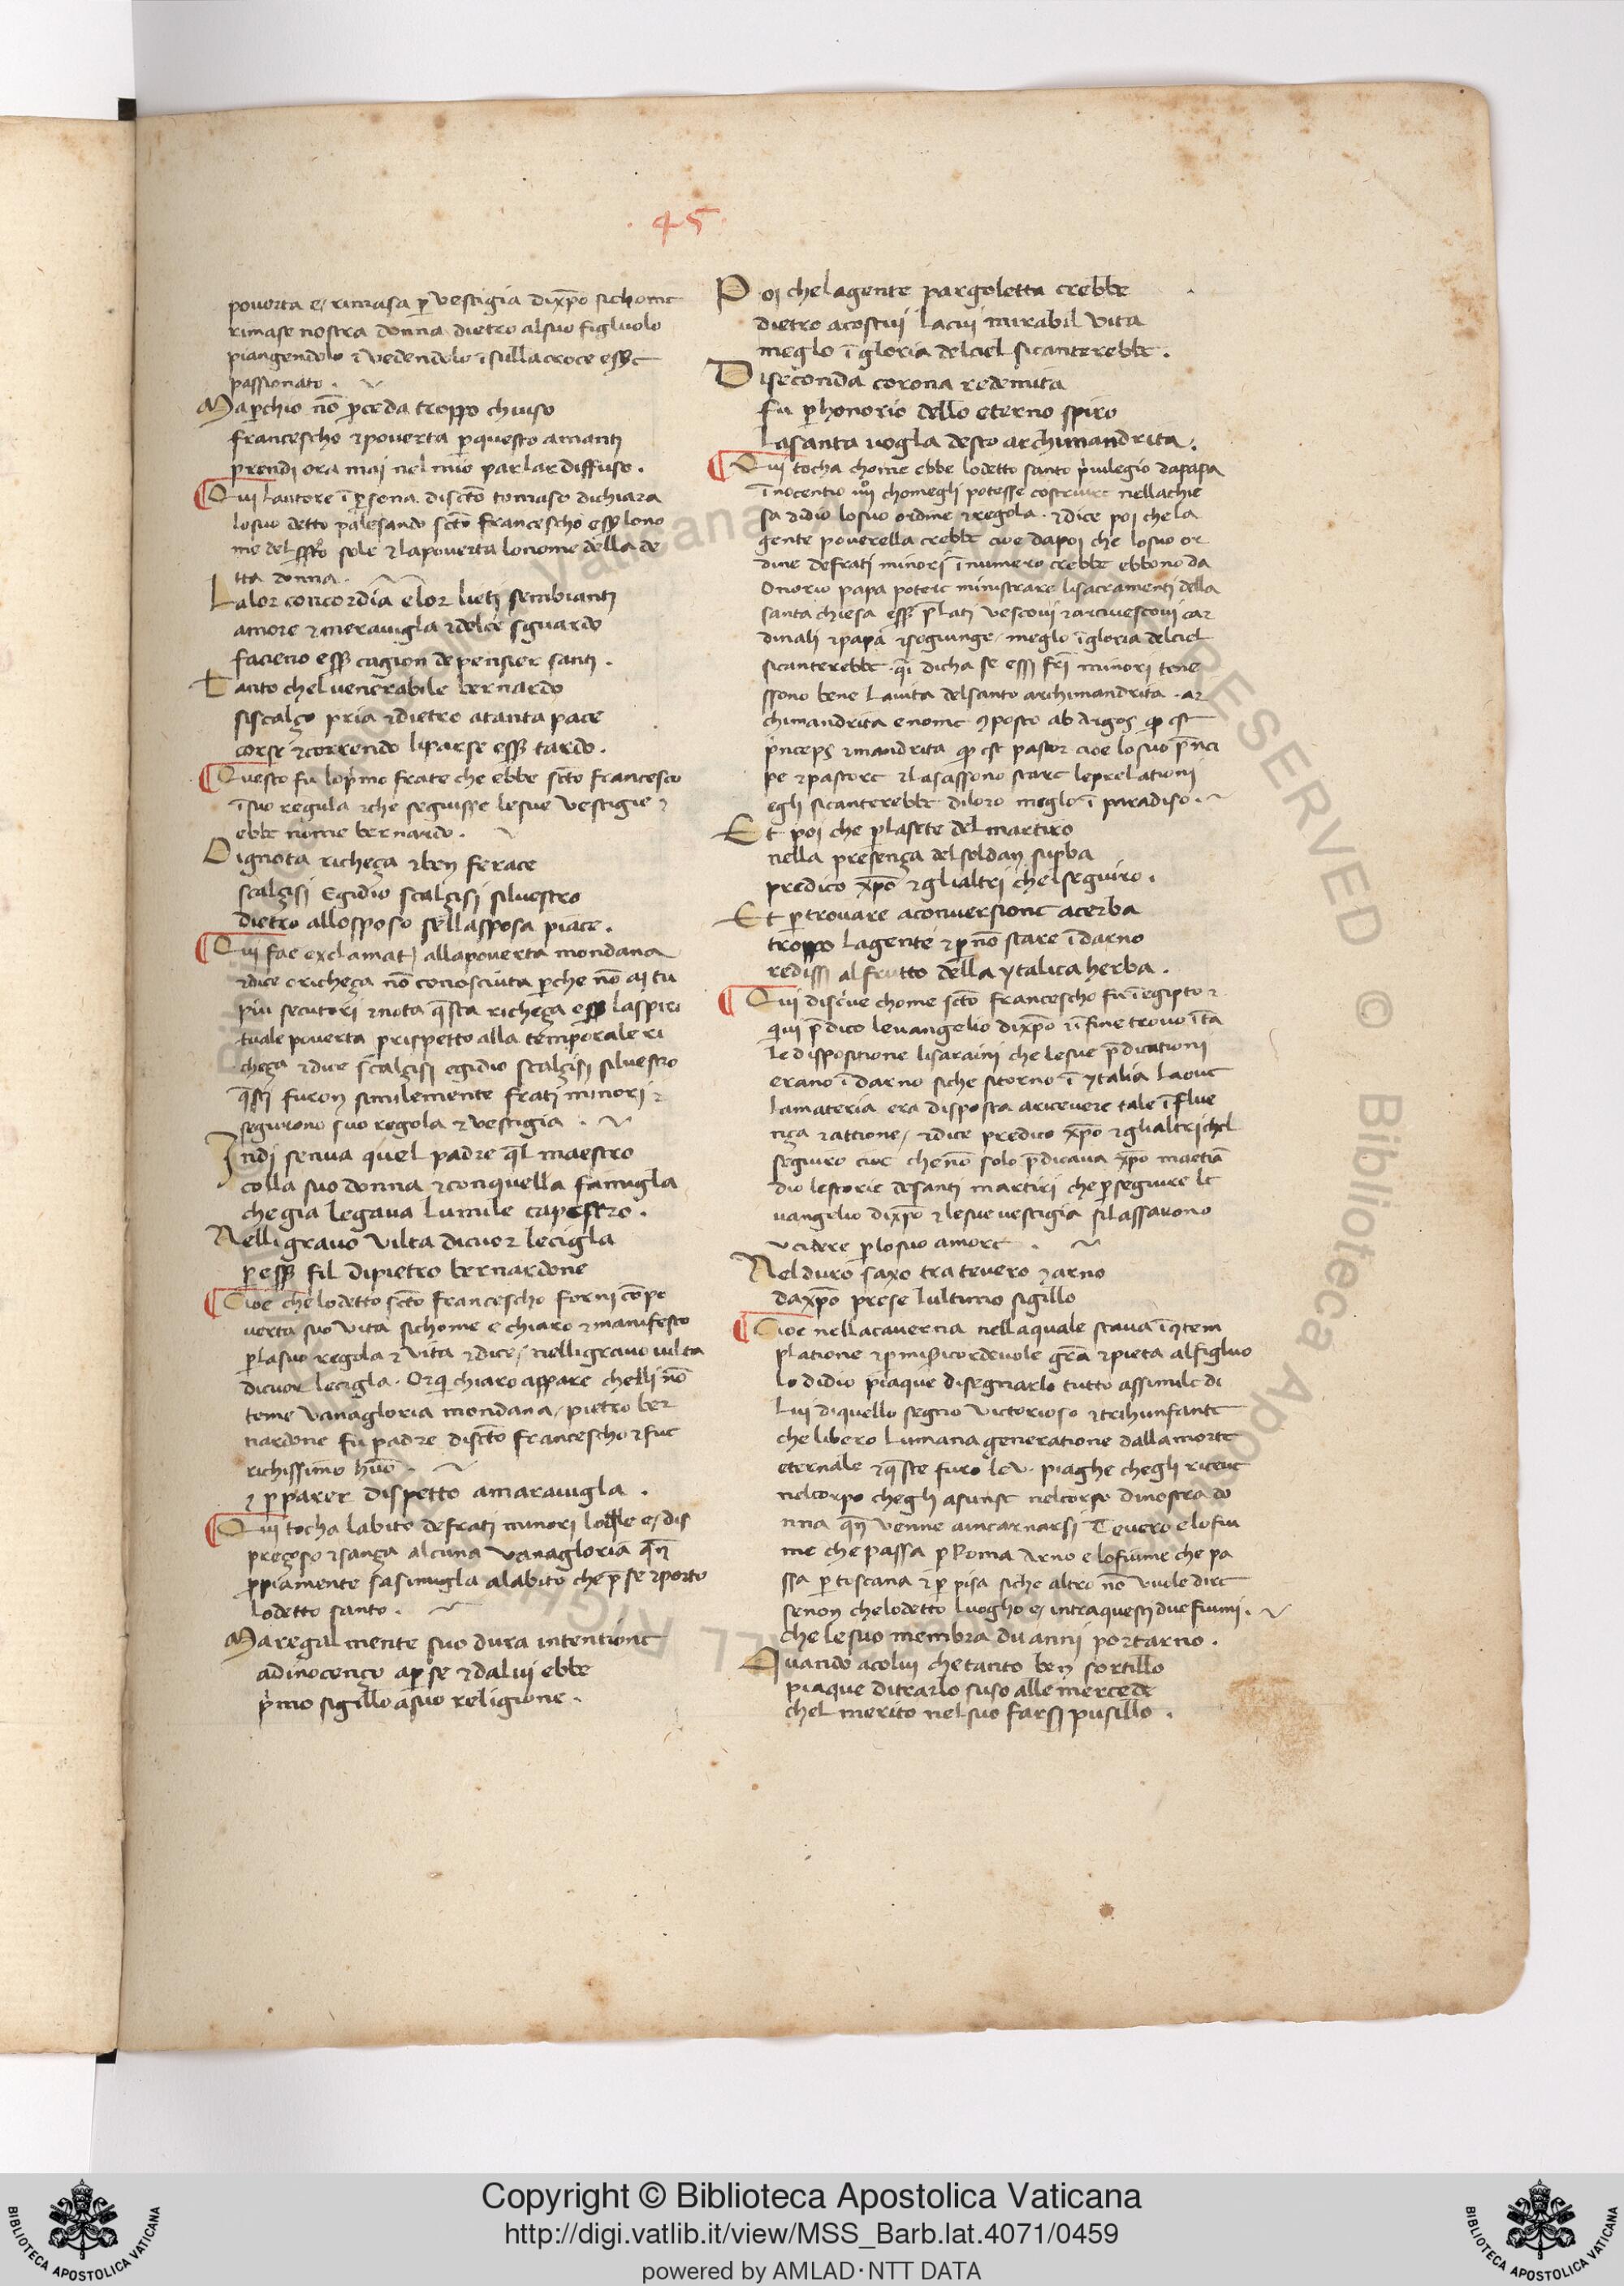 45
pouerta e rimasa p vestigia dixpo sichome
rimase nostra donna dietro alsuo figluolo
piangendolo ī vedendolo ī sulla croce esse
passionato .
Maperchio nō proceda troppo chiuso
francescho &pouerta p questo amanti
prendi ora mai nel mio parlar diffuso .
Qui lautore ī psona discto tomaso dichiara
losuo detto palesando scto francescho esse lono
me del sole & lapouerta lonome della de
tta donna .
Lalor concordia elor lieti sembianti
amore & merauigla & dolce sguardo
facieno esse cagion de pensier santi .
Tanto chel venerabile bernardo
siscalço pria & dietro atanta pace
corse & correndo liparse esse tardo .
Questo fu lopimo frate che ebbe scto francesco
ī suo regula & che seguisse lesue vestigie &
ebbe nome bernardo .
O ignota richeça & ben ferace
scalçisi Egidio scalçisi siluestro
dietro allosposo sellasposa piace .
Qui fae exclamat allapouerta mondana
&dice o richeça nō conosciuta pche nō ai tu
piu secutori & nota qsta richeça esse laspiri
tuale pouerta prispetto alla temporale ri
cheça & dice scalçisi egidio scalçisi siluestro
qsti furon similemente frati minori &
seguirono suo regola & vestigia .
Indi senua quel padre ql maestro
colla suo donna & conquella famigla
che gia legaua lumile capestro .
Nelli grauo vilta dicuor lecigla
p esse fil dipietro bernardone
Cioe che lodetto scto francescho forni cō po
uerta suo vita sichome e chiaro & manifesto
plasuo regola & vita & dice nelli grauo vilta
dicuor lecigla . Or qi chiaro appare chelli nō
teme vanagloria mondana / pietro ber
nardone fu padre discto francescho & fue
richissimo huō .
& p parer dispetto amarauigla .
Qui tocha labito defrati minori loqle e dis
preçoso & sança alcuna vanagloria qn
ppiamente sasimigla alabito che pse & porto
lodetto santo .
Maregalmente suo dura intentione
adinocenço apse & dalui ebbe
pimo sigillo asuo religione .
Poi chelagente pargoletta crebbe
dietro acostui lacui mirabil vita
meglo ī gloria delciel sicanterebbe .
Diseconda corona redemita
fu p honorio dello eterno spiro
Lasanta uogla desto archimandrita .
Qui tocha chome ebbe lodetto santo priuilegio dapapa
īnocentio chomegli potesse costruire nellachie
sa didio losuo ordine & regola . & dice poi che la
gente pouerella crebbe cioe dapoi che losuo or
dine defrati minori ī numero crebbe ebbono da
Onorio papa potere ministrare lisacramenti della
santa chiesa esse plati vescoui & arciuescoui car
dinali & papa & segiunge meglo ī gloria delciel
sicanterebbe qi dicha se essi fri minori tene
ssono bene lauita delsanto archimandrita . ar
chimandrita e nome 9posto ab Argos qd est
pinceps & mandrita qd est pastor cioe losuo pnci
pe & pastore & lasassono stare leprelationi
egli sicanterebbe diloro meglo ī paradiso .
Et poi che plasete del martiro
nella presença delsoldan supba
predico xpo & glialtri chelseguiro .
Et p trouare aconuersione acerba
troppo lagente & p nō stare ī darno
redissi alfrutto della ytalica herba .
Qui discriue chome scto francescho fu ī egipto &
qiui pdico leuangelio dixpo & ī fine trouo ī ta
le dispositione lisaraini che lesue pdicationi
erano ī darno siche sitorno ī ytalia laoue
lamateria era disposta ariceuere tale ī flue
nça & actione / & dice predico xpo & glialtri chel
seguiro cioe che nō solo pdicaua xpo
dio lestorie desanti martiri che pseguire le
uangelio dixpo & lesue vestigia silassarono
vcidere plosuo amore .
Nelduro saxo tra teuero & arno
daxpo prese lultimo sigillo
Cioe nellacauerna nellaquale staua ī 9tem
platione & p misicordeuole gra & pieta alfigluo
lo didio piaque disegnarlo tutto assimile di
lui diquello segno victorioso & trihunfante
che libero lumana generatione dallamorte
eternale & qste furo le v . piaghe chegli riceue
nelcorpo chegli asunse nelcorpo dinostra do
nna qn venne aincarnarsi Teuero e lofiu
me che passa p Roma Arno e lofiume che pa
ssa p toscana & p pisa siche altro nō vuole dire
senon chelodetto luogho e intraquesti due fiumi .
che lesuo membra du anni portarno .
Quando acolui chetanto ben sortillo
piaque ditrarlo suso alle mercede
chel merito nelsuo farsi pusillo .
Copyright © Biblioteca Apostolica Vaticana
http://digi.vatlib.it/view/MSS_Barb.lat.4071/0459
powered by AMLAD·NTT DATA
BIBLIOTECA APOSTOLICA VATICANA
BIBLIOTECA APOSTOLICA VATICANA